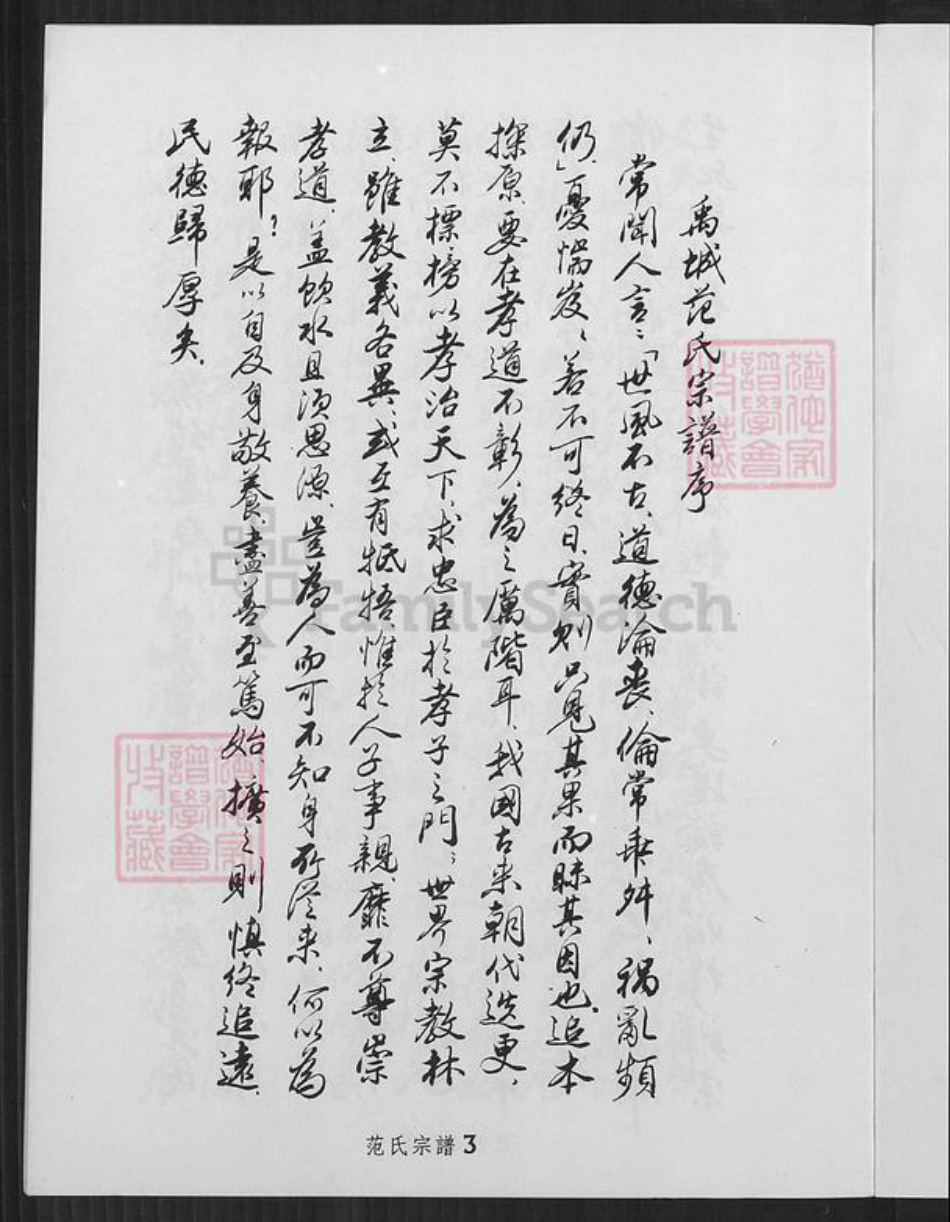 禹城范氏宗譜序
常聞人言：「世風不古、道德淪喪、倫常乖舛、禍亂頻
仍」憂惴岌岌、若不可終日、實則只見其果而昧其因也、追本
探原、要在孝道不彰、為之厲階耳、我國古來朝代迭更、
莫不標榜以孝治天下、求忠臣於孝子之門；世界宗教林
立、雖教義各異、或互有牴牾惟於人子事親、靡不尊崇
孝道、蓋飲水且須思源、豈為人而可不知身所從來、何以為
報耶？是以自及身敬養、盡善至篤始、擴之則慎終追遠、
民德歸厚矣、
猶他家
譜學會
收藏
猶他家
譜學會
收藏
FamilySearch
范氏宗譜 3